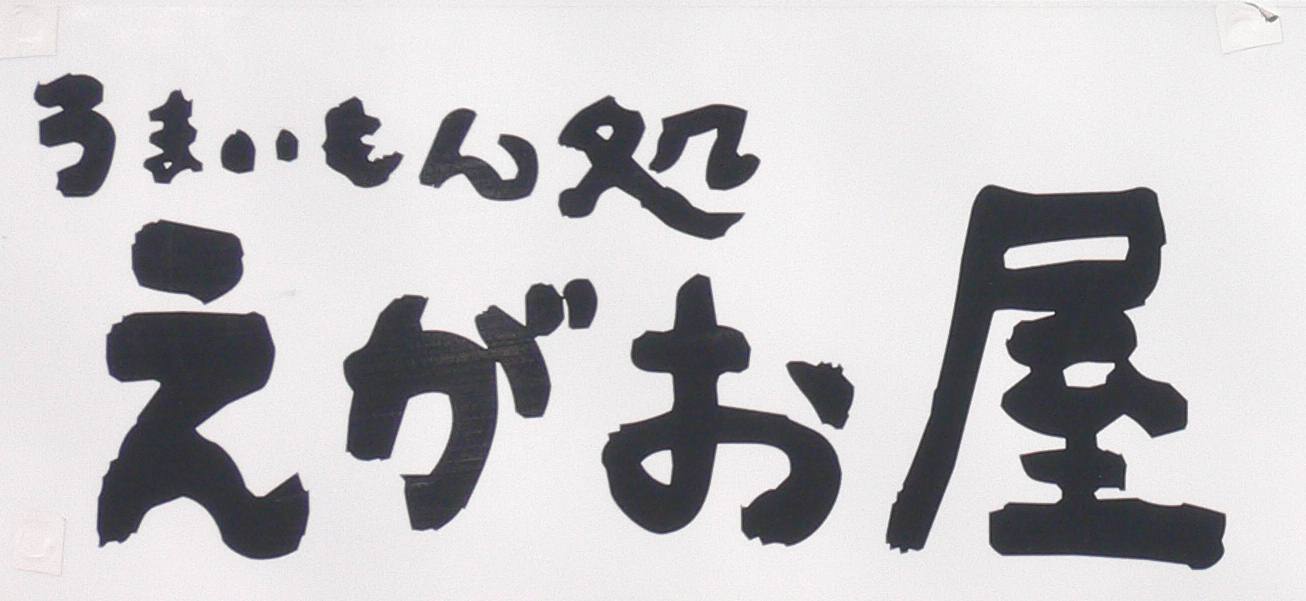 うまいもん処
えがお屋